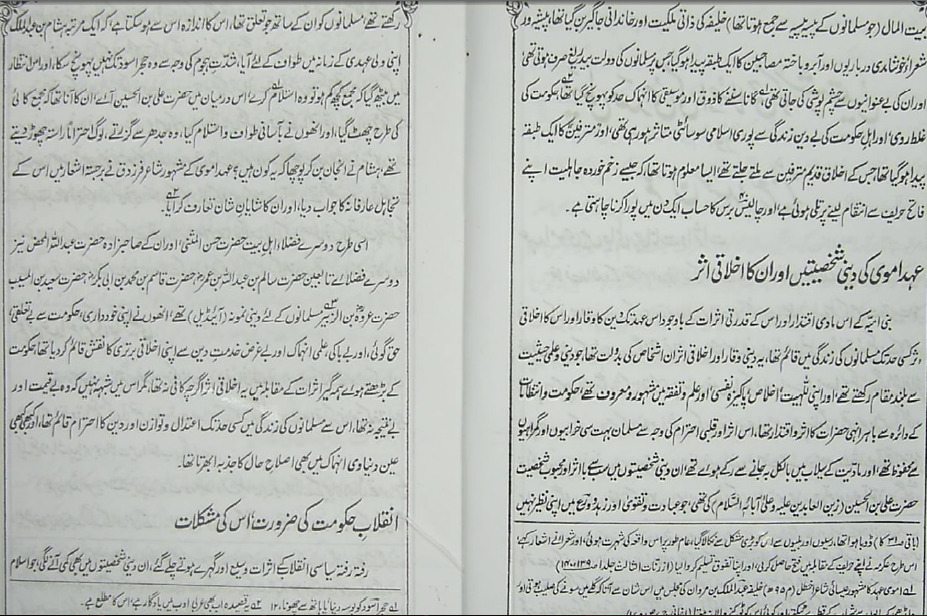 بیت المال (جو مسلمانوں کے پیسہ پیسہ سے جمع ہوتا تھا) خلیفہ کی ذاتی ملکیت اور خاندانی جاگیر بن گیا تھا، پیشہ ور
شعراء، خوشامدی درباریوں اور آبرو باختہ مصاحبین کا ایک طبقہ پیدا ہوگیا جس پر مسلمانوں کی دولت بیدریغ صرف ہوتی تھی
اور ان کی بے عنوانیوں سے چشم پوشی کی جاتی تھی، گانا سننے کا ذوق اور موسیقی کا انہماک حد کو پہونچ گیا تھا، حکومت کی
غلط روی اور اہل حکومت کی بے دین زندگی سے پوری اسلامی سوسائٹی متاثر ہو رہی تھی، اور مترفین کا ایک طبقہ
پیدا ہوگیا تھا، جس کے اخلاق قدیم مترفین سے ملتے جلتے تھے، ایسا معلوم ہوتا تھا، کہ جیسے زخم خوردہ جاہلیت اپنے
فاتح حریف سے انتقام لینے پر تلی ہوئی ہے، اور چالیس برس کا حساب ایک دن میں پورا کرنا چاہتی ہے۔
عہد اموی کی دینی شخصیتیں اور ان کا اخلاقی اثر
بنی امیّہ کے اس مادی اقتدار اور اس کے قدرتی اثرات کے باوجود اس عہد تک دین کا وقار اور اس کا اخلاقی
اثر کسی حد تک مسلمانوں کی زندگی میں قائم تھا، یہ دینی وقار اور اخلاقی اثر ان اشخاص کی بدولت تھا، جو دینی و علمی حیثیت
سے بلند مقام رکھتے تھے، اور اپنی للّٰہیت، اخلاص، پاکیزہ نفسی، اور علم و تفقہ میں مشہور و معروف تھے، حکومت و انتظامات
کے دائرہ سے باہر انہی حضرات کا اثر و اقتدار تھا، اس اثر اور قلبی احترام کی وجہ سے مسلمان بہت سی خرابیوں اور گمراہیوں
سے محفوظ تھے، اور مادیت کے سیلاب میں بالکل بہ جانے سے رکے ہوئے تھے، ان دینی شخصیتوں میں سب سے با اثر اور محبوب شخصیت
حضرت علی بن الحسین (زین العابدین علیہ وعلیٰ آبائہ السلام) کی تھی، جو عبادت و تقویٰ اور زہد و ورع میں اپنی نظیر نہیں
(باقی صفحہ ۳۱ کا) ڈوبا ہوا تھا، رسیوں اور بلیوں سے اس کو بڑی مشکل سے نکالا گیا، عام طور پر اس واقعہ کی شہرت ہوئی، اور شعراء نے اشعار کہے
رکھتے تھے، مسلمانوں کو ان کے ساتھ جو تعلق تھا، اس کا اندازہ اس سے ہوسکتا ہے کہ ایک مرتبہ ہشام بن عبدالملک
اپنی ولی عہدی کے زمانہ میں طواف کے لئے آیا، شدّتِ ہجوم کی وجہ سے وہ حجر اسود تک نہیں پہونچ سکا، اور اس انتظار
میں بیٹھ گیا کہ مجمع کچھ کم ہو تو وہ استلام کرے، اس درمیان میں حضرت علی بن الحسین آئے، ان کا آنا تھا کہ مجمع کائی
کی طرح چھٹ گیا، اور انھوں نے بآسانی طواف و استلام کیا، وہ جدھر سے گزرتے، لوگ احتراماً راستہ چھوڑ دیتے
تھے، ہشام نے انجان بن کر پوچھا کہ یہ کون ہیں؟ عہد اموی کے مشہور شاعر فرزدق نے برجستہ اشعار میں اس کے
تجاہل عارفانہ کا جواب دیا، اور ان کا شایان شان تعارف کرایا۔
اسی طرح دوسرے فضلاء اہل بیت حضرت حسن المثنیٰ اور ان کے صاحبزادہ حضرت عبداللہ المحض نیز
دوسرے فضلائے تابعین حضرت سالم بن عبداللہ بن عمرؓ، حضرت قاسم بن محمد بن ابی بکرؓ، حضرت سعید بن المسیب
حضرت عروہ بن الزبیر مسلمانوں کے لئے دینی نمونہ (آئیڈیل) تھے، انھوں نے اپنی خودداری، حکومت سے بے تعلقی،
حق گوئی، اور بے باکی، علمی انہماک اور بے غرض خدمتِ دین سے اپنی اخلاقی برتری کا نقش قائم کر دیا تھا، حکومت
کے بڑھتے ہوئے ہمہ گیر اثرات کے مقابلہ میں یہ اخلاقی اثر اگرچہ کافی نہ تھا، مگر اس میں شبہ نہیں کہ وہ بے قیمت اور
بے نتیجہ نہ تھا، اس سے مسلمانوں کی زندگی میں کسی حد تک اعتدال و توازن اور دین کا احترام قائم تھا، اور کبھی کبھی
عین دنیاوی انہماک میں بھی اصلاح حال کا جذبہ ابھرتا تھا۔
انقلابِ حکومت کی ضرورت، اس کی مشکلات
رفتہ رفتہ سیاسی انقلاب کے اثرات وسیع اور گہرے ہوتے چلے گئے، ان دینی شخصیتوں میں بھی کمی آنے لگی، جو اسلام